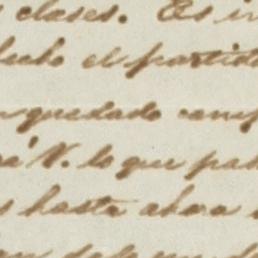 clases. Es i
echo el partid
quedado comp
é V. lo que pa
hasta ahora